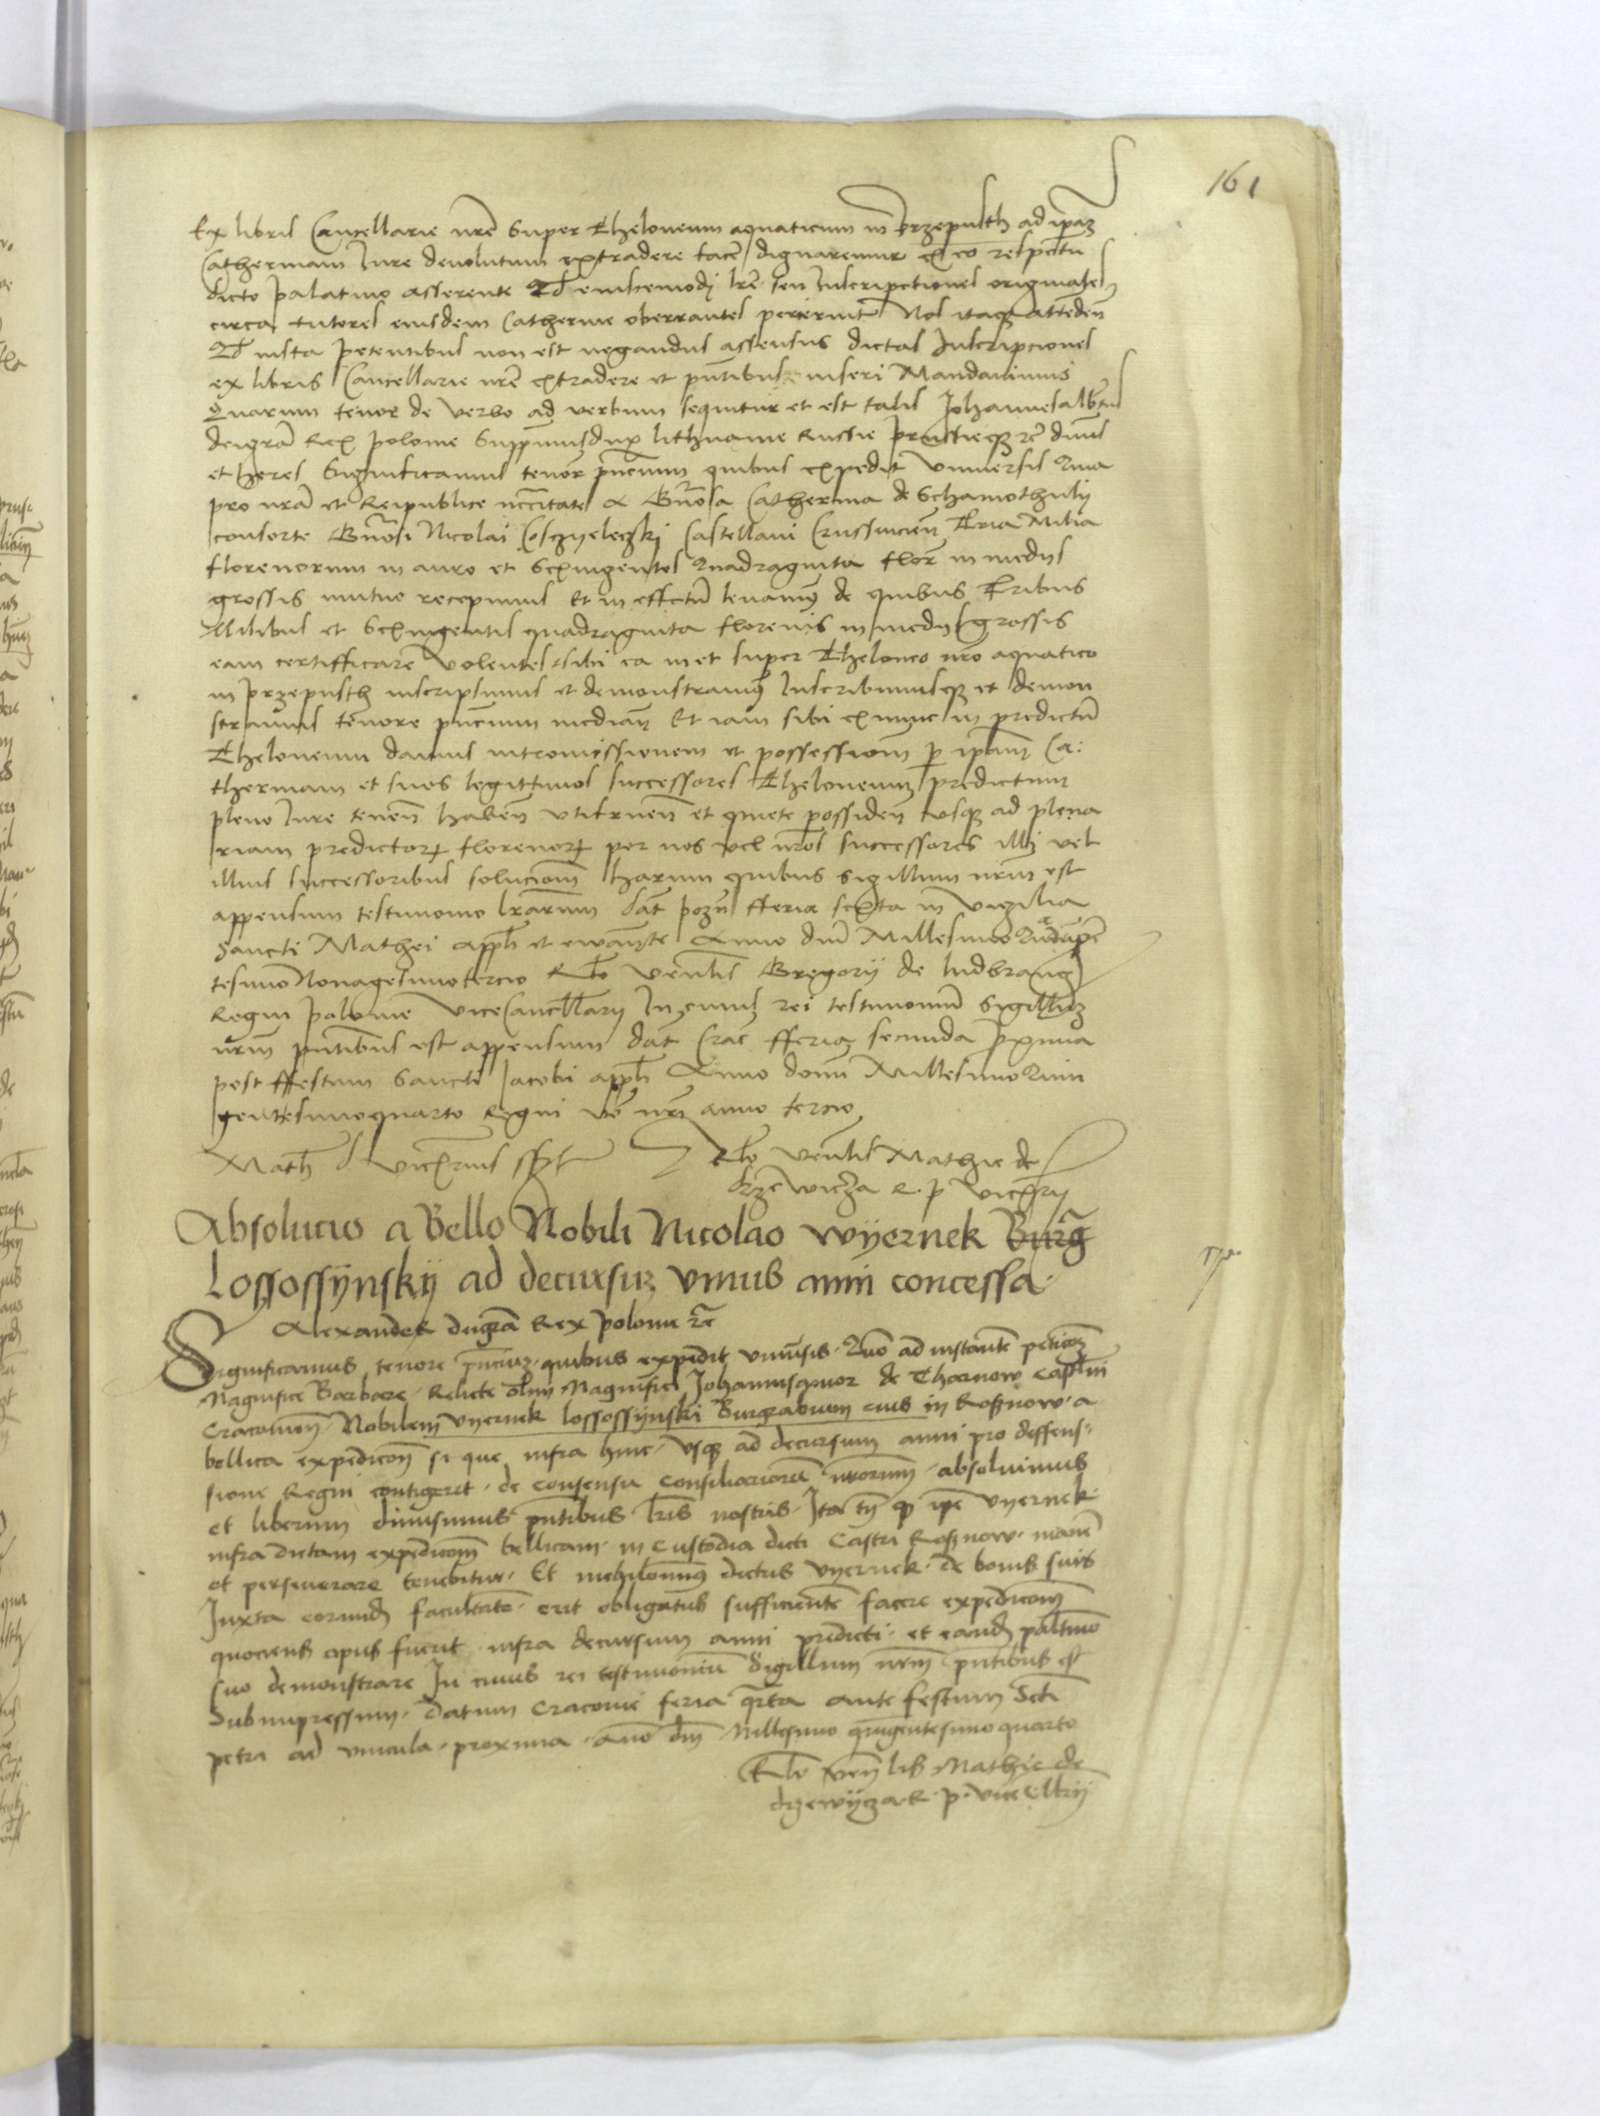 161
Ex libris Cancellarie nr̃e super Theloneum aquaticum in przepusth ad ip̃am
Catherinam Iure devolutum extradere facẽ dignaremur ex eo respectu
dicto palatino asserente
circa tutores eiusdem Catherine oberrantes perierint Nos itaqꝫ attendeñ
iusta petentibus non est negandus assensus dictas Inscripciones
ex libris Cancellarie nr̃e extradere et pñtibus inseri Mandavimus
Quarum tenor de verbo ad verbum sequitur et est talis Johannes albert9
dei grã Rex polonie Suppremusdux lithuanie Russie prussieqꝫ ꝛc̃ dñus
et heres Significamus tenor p̃ncium quibus expedit universis Quia
pro nrã et Reipublice nccĩtate a Gñosa Catherina de Schamothuly
consorte Gñosi Nicolai Coszyeleczki Castellani Crusvicieñ Tria Milia
florenorum in auro et Sexingentos Quadraginta flor̃ in medys
grossis mutuo recepimus Et in effectũ levamus de quibus Tribus
Milibus et Sexingentis quadraginta florenis in medys grossis
eam certifficare volentes sibi ea in et super Theloneo nr̃o aquatico
in przepusth inscripsimus et demonstravimus Inscribimusqꝫ et demon
stramus tenore p̃ncium mediañ Et iam sibi ex nunc in predictũ
Theloneum damus intromissionem et possessioñ p̱ ip̃am Ca:
therinam et suos legittimos successores Theloneum predictum
pleno Iure teneñ habeñ utifrueñ et quiete possideñ usqꝫ ad plena
riam predictorꝝ florenorꝝ per nos vel nr̃os successores illi vel
illius successoribus solucioñ harum quibus sigillum nrm̃ est
appensum testimonio lr̃arum Dat̃ pozñ fferia sexta in vigilia
Sancti Mathei appl̃i et ewãngte Anno dñi Millesimo Quadringen
tesimo Nonagesimotercio Rl̃o Veñlis Gregorij de ludbrancz
Regni polonie ViceCancll̃arij In cuius rei testimoniũ Sigillum
nrm̃ pñtibus est appensum dat̃ Crac̃ fferia secunda proxima
post ffestum Sancti Jacobi appl̃i Anno domi Millesimo Quin
gentesimoquarto Regni vo̊ nrĩ anno tercio
Math̃ d vice
Rl̃o Veñlis Mathie de
drzewicza R. p vice
Absolucio a Bello Nobili Nicolao wyernek Burg̃
Lossossÿnskÿ ad decursum unius anni concessa.
Alexander dei grã Rex polonie ꝛc̃
Significamus tenore p̃ncium quibus expedit uniṽsis. Quo ad instantẽ peticõeꝫ
Magnifice Barbare Relicte olim Magnifici Johannis amor de Tharnow Castl̃ni
Cracovieñ Nobilem Vyernek lossossÿnski Burgravium eius in Rosznow a
bellica expedicoñ si que infra hinc usqꝫ ad decursum anni pro deffens-
sione Regni contigerit de consensu consiliariorũ nrorum absolvimus
et liberum dimisimus pñtibus lr̃is nostris Ita tñ ꝙ ip̃e Vyernek
infra dictam expedicoñ bellicam in custodia dicti Castri Rosznow manẽ
et perseverare tenebitur Et nichilominus dictus Vyernek de bonis suis
Juxta eorund̃ facultatẽ erit obligatus sufficientẽ facere expedicoñ
quociens opus fuerit infra decursum anni predicti et eand̃ palatino
suo demonstrare In cuius rei testimoniũ Sigillum nrm̃ pñtibus est
Subimpressum Datum Cracovie feria q̃rta ante festum Scti
petri ad vincula proxima Ano dñi Millesimo quingentesimo quarto
Rl̃o veñlis Mathie de
drzewÿcza R. p. vicecllrij